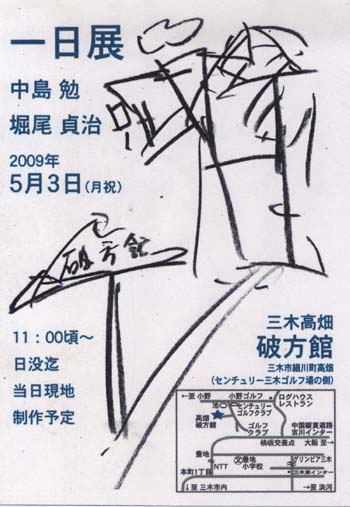 一日展
中島 勉
堀尾 貞治
2009年
5月3日(月祝)
破方館
11:00頃〜
日没迄
当日現地
制作予定
三木高畑
破方館
三木市細川町高畑
(センチュリー三木ゴルフ場の側)
←至 小野
小野ゴルフ
ログハウス
レストラン
池
センチュリー
ゴルフクラブ
高畑
破方館
ゴルフ
クラブ
中国縦貫道路
吉川インター
桃坂交差点
大阪 至→
豊地
文 豊地
小学校
グリンピア三木
本町1丁目
NTT
↓至 三木市内
→至 浜河